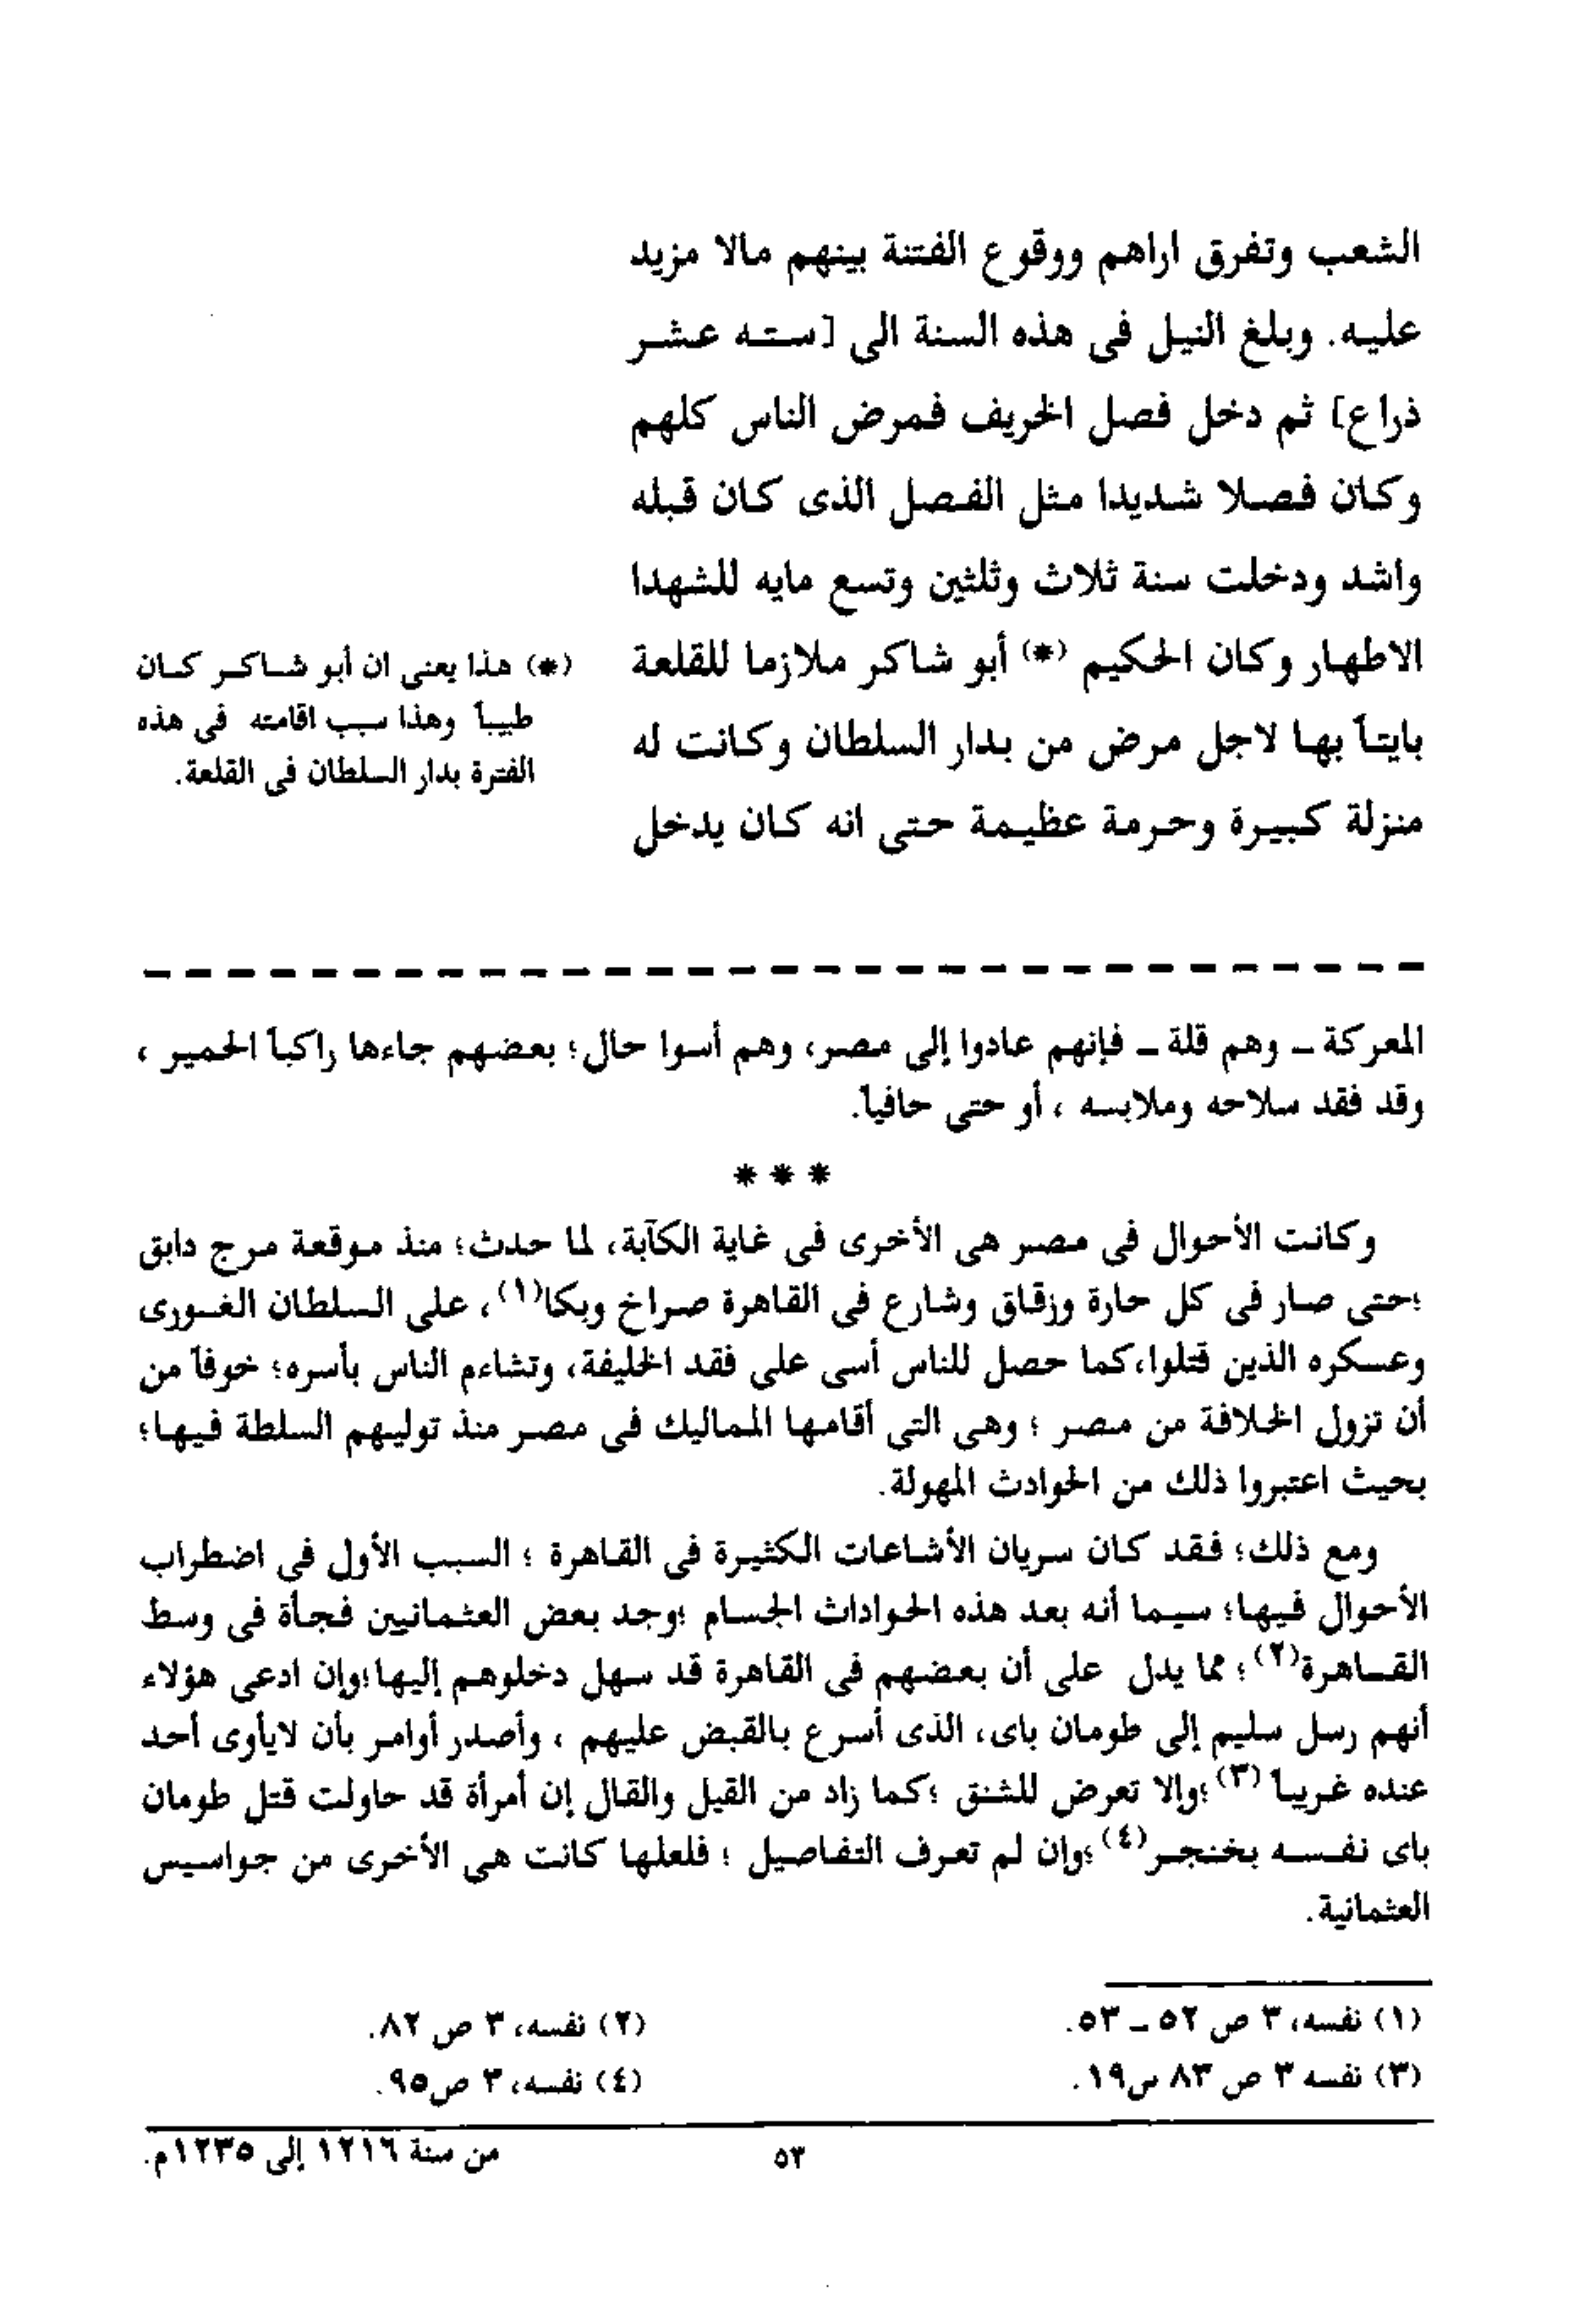 الشعب وتفرق اراهم ووقوع الفتنة بينهم مالا مزيد
عليه. وبلغ النيل فى هذه السنة الى [سته عشر
ذراع] ثم دخل فصل الخريف فمرض الناس كلهم
وكان فصلا شديدا مثل الفصل الذى كان قبله
واشد ودخلت سنة ثلاث وثلثين وتسع مايه للشهدا
الاطهار وكان الحكيم (*) أبو شاكر ملازما للقلعة
بايتاً بها لاجل مرض من بدار السلطان وكانت له
منزلة كبيرة وحرمة عظيمة حتى انه كان يدخل
(*) هذا يعنى ان أبو شاكر كان
طبيباً وهذا سبب اقامته فى هذه
الفترة بدار السلطان فى القلعة.
المعركة ـ وهم قلة ـ فإنهم عادوا إلى مصر، وهم أسوا حال؛ بعضهم جاءها راكباً الحمير ،
وقد فقد سلاحه وملابسه ، أو حتى حافياً.
* * *
وكانت الأحوال فى مصر هى الأخرى فى غاية الكآبة، لما حدث؛ منذ موقعة مرج دابق
؛حتى صار فى كل حارة وزقاق وشارع فى القاهرة صراخ وبكا(١)، على السلطان الغورى
وعسكره الذين قتلوا،كما حصل للناس أسى على فقد الخليفة، وتشاءم الناس بأسره؛ خوفاً من
أن تزول الخلافة من مصر ؛ وهى التى أقامها المماليك فى مصر منذ توليهم السلطة فيها؛
بحيث اعتبروا ذلك من الحوادث المهولة.
ومع ذلك؛ فقد كان سريان الأشاعات الكثيرة فى القاهرة ؛ السبب الأول فى اضطراب
الأحوال فيها؛ سيما أنه بعد هذه الحوادات الجسام ؛وجد بعض العثمانيين فجأة فى وسط
القاهرة(٢)؛ مما يدل على أن بعضهم فى القاهرة قد سهل دخلوهم إليها؛وإن ادعى هؤلاء
أنهم رسل سليم إلى طومان باى، الذى أسرع بالقبض عليهم ، وأصدر أوامر بأن لايأوى أحد
عنده غريباً (٣)؛والا تعرض للشنق ؛كما زاد من القيل والقال إن أمرأة قد حاولت قتل طومان
باى نفسه بخنجر(٤)؛وان لم تعرف التفاصيل ؛ فلعلها كانت هى الأخرى من جواسيس
العثمانية.
(١) نفسه، ٣ ص ٥٢ ـ ٥٣.
(٢) نفسه، ٣ ص ٨٢.
(٣) نفسه ٣ ص ٨٣ س١٩.
(٤) نفسه، ٣ ص٩٥.
٥٣
من سنة ١٢١٦ إلى ١٢٣٥م.